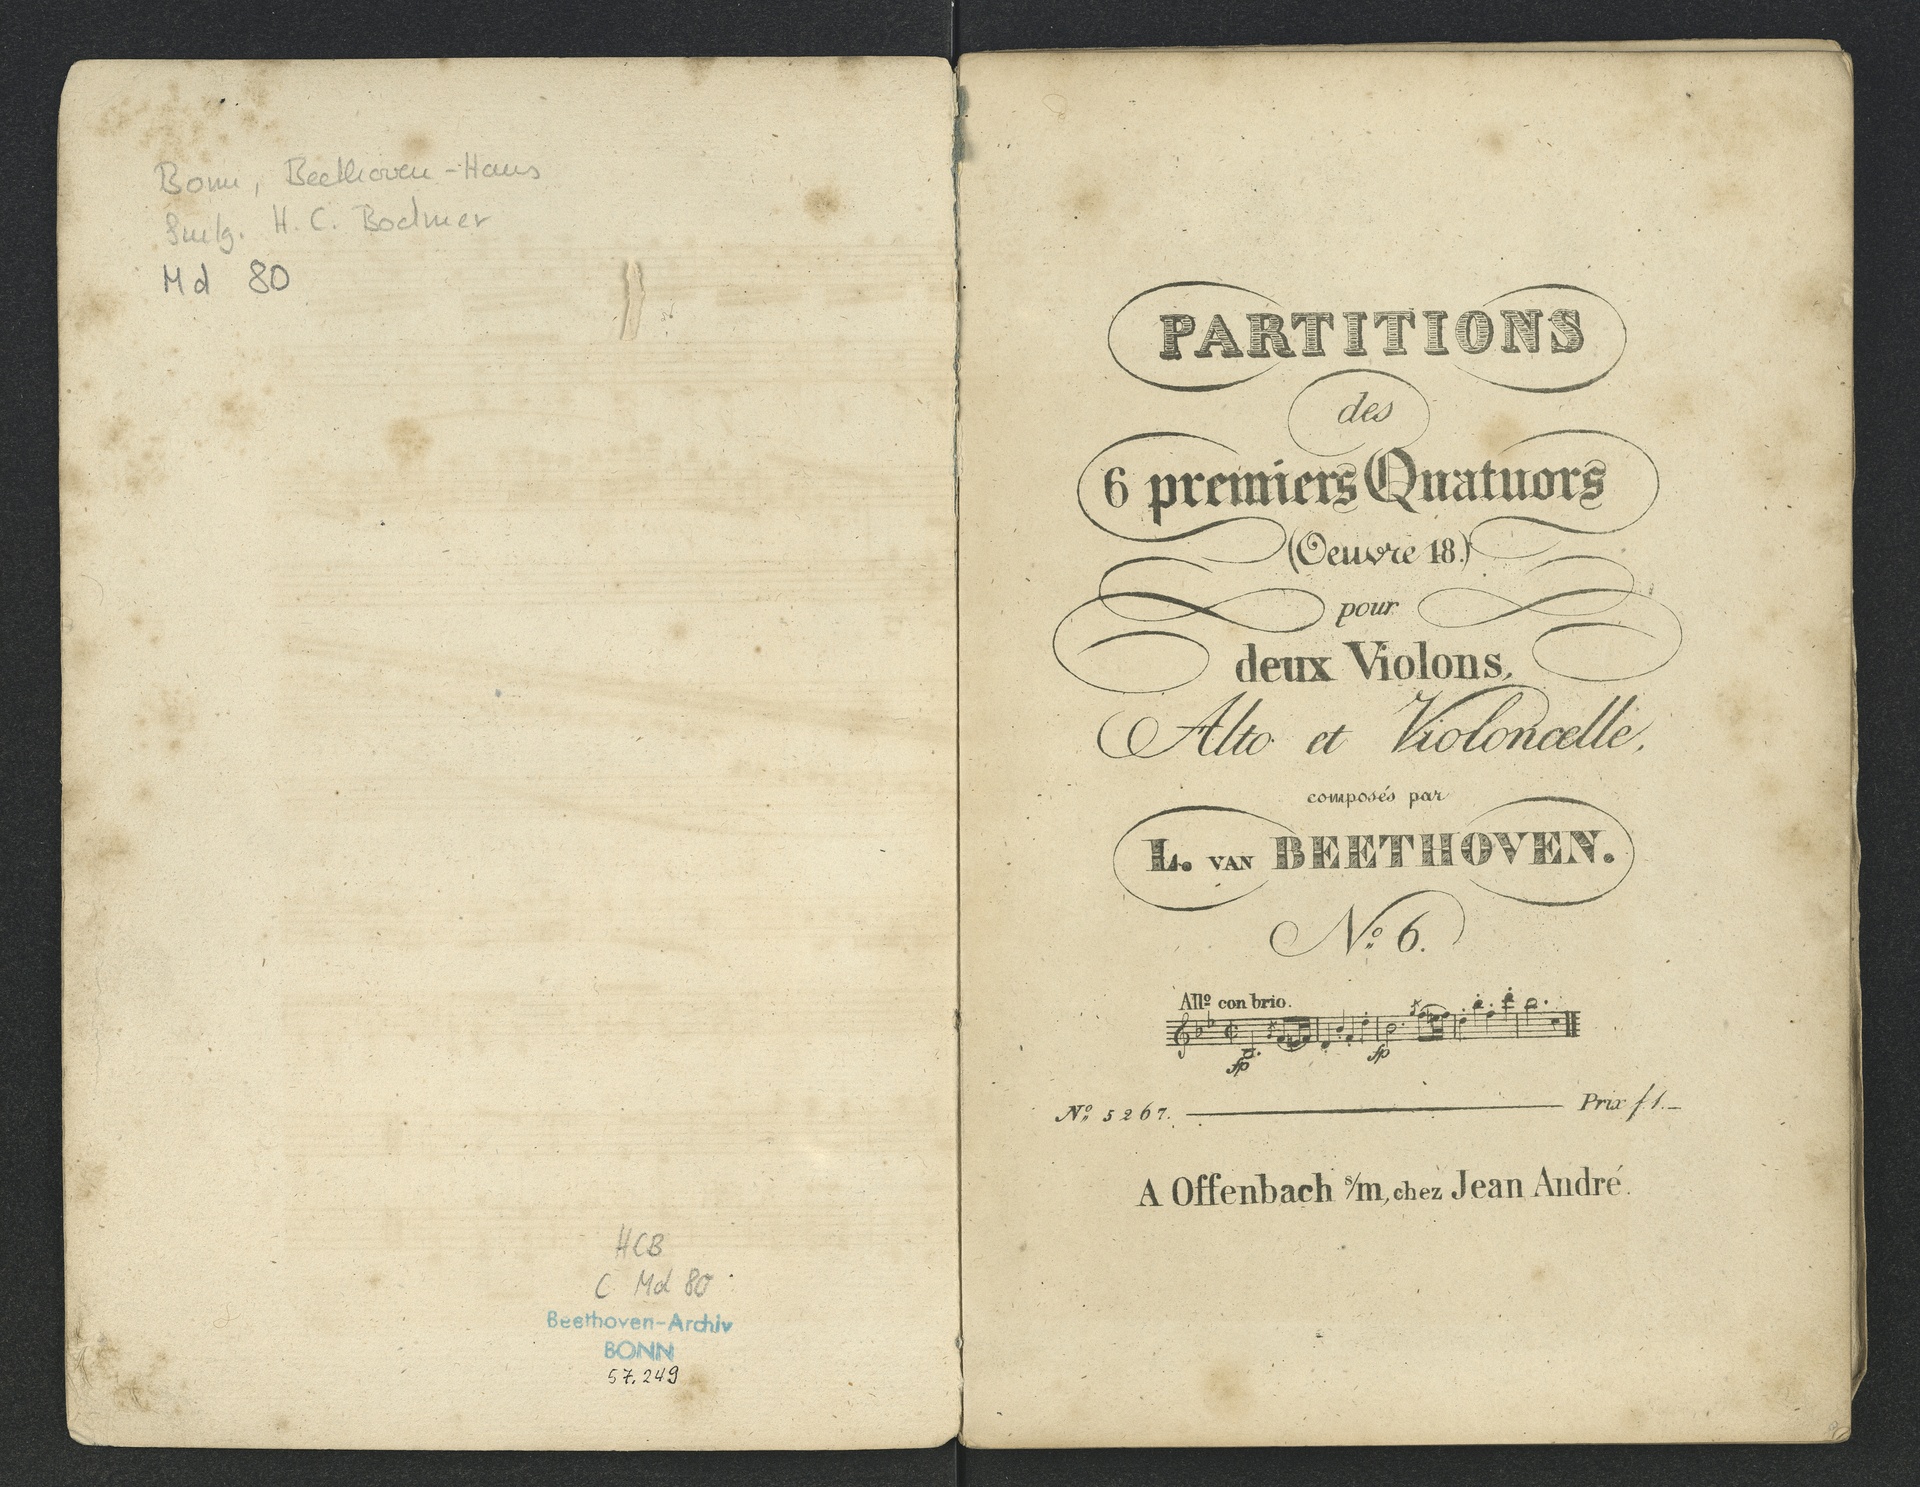 Bonn, Beethoven-Haus
Smlg. H. C. Bodmer
Md 80
HCB
C Md 80
Beethoven-Archiv
BONN
57.249
PARTITIONS
des
6 premiers Quatuors
(Oeuvre 18.)
pour
deux Violons,
Alto et Violoncelle,
composés par
L. VAN BEETHOVEN.
Nº 6.
Allº con brio.
fp fp
Nº 5267. Prix f 1._
A Offenbach s/m, chez Jean André.